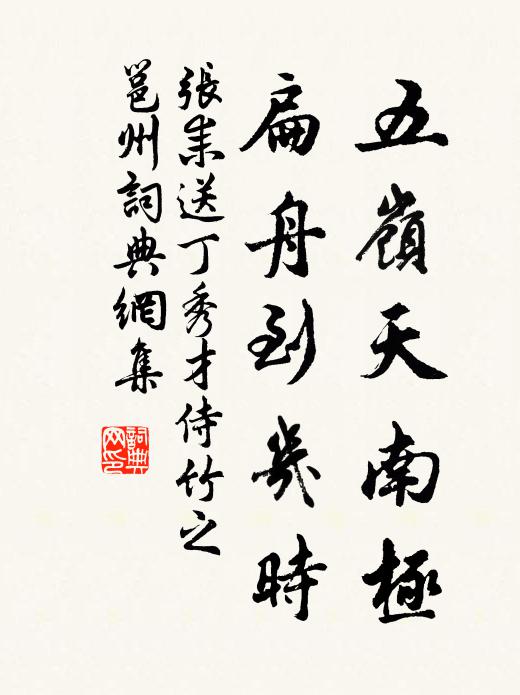 五嶺天南極
扁舟到幾時
張耒送丁秀才侍竹之
邕州詞典網集
詞典
网印